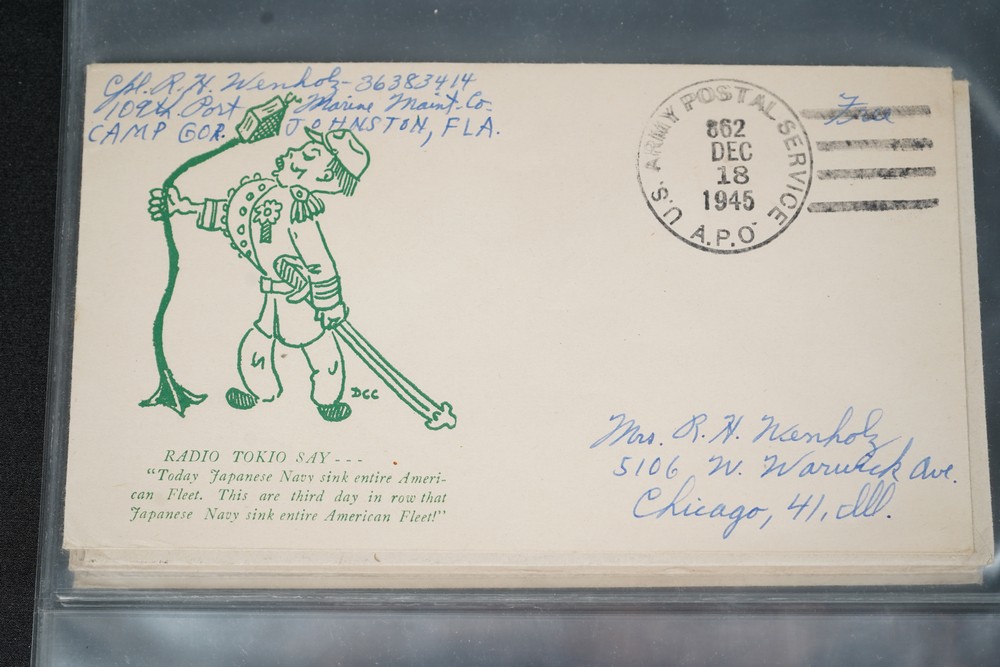 Cpl. R. H. Wenholz - 36383414
109th Port Marine Maint. Co.
CAMP GOR. JOHNSTON, FLA.
U.S. ARMY POSTAL SERVICE
862
DEC
18
1945
A.P.O.
Free
DCC
RADIO TOKIO SAY ---
"Today Japanese Navy sink entire Ameri-
can Fleet. This are third day in row that
Japanese Navy sink entire American Fleet!"
Mrs. R. H. Wenholz
5106 W. Warwick Ave.
Chicago, 41, Ill.